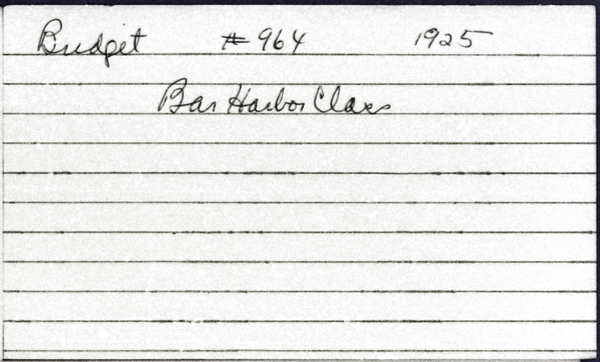 Budget #964 1925
Bar Harbor Class